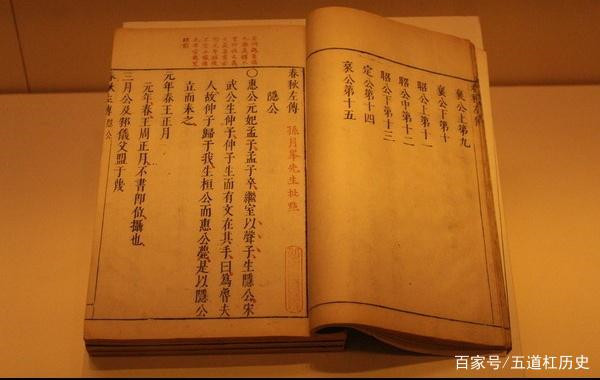 春秋左傳
襄公上第九
襄公下第十
昭公上第十一
昭公中第十二
昭公下第十三
定公第十四
哀公第十五
春秋左傳
孫月峯先生批點
隱公
〇惠公元妃孟子孟子卒繼室以聲子生隱公宋
武公生仲子仲子生而有文在其手曰爲魯夫
人故仲子歸于我生桓公而惠公薨是以隱公
立而奉之
元年春王正月
元年春王周正月不書卽位攝也
三月公及邾儀父盟于蔑
春秋左傳 隱公
百家号/五道杠历史